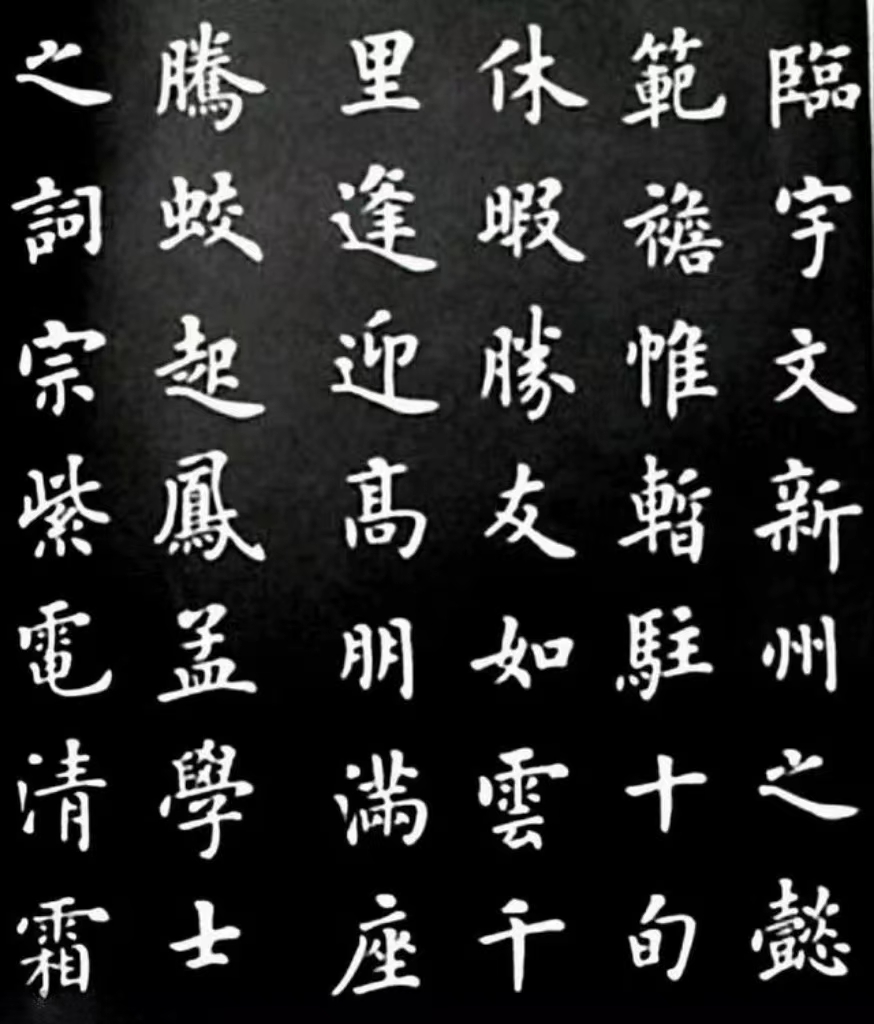 臨宇文新州之懿
範襜帷暫駐十旬
休暇勝友如雲千
里逢迎高朋滿座
騰蛟起鳳孟學士
之詞宗紫電清霜